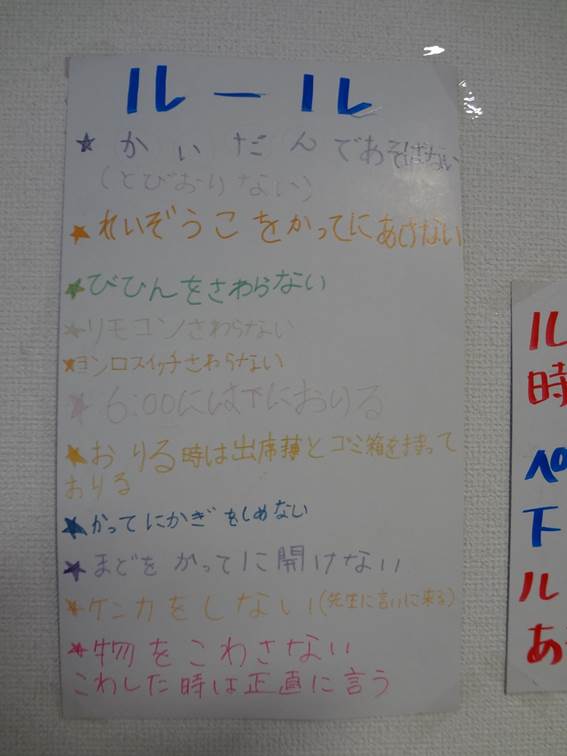 ルール
★かいだんであそばない
(とびおりない)
★れいぞうこをかってにあけない
★びひんをさわらない
★リモコンさわらない
★ヨンロスイッチさわらない
★6:00には下におりる
★おりる時は出席簿とゴミ箱を持って
おりる
★かってにかぎをしめない
★まどをかってに開けない
★ケンカをしない(先生に言いに来る)
★物をこわさない
こわした時は正直に言う
ル
時
ペ
下
ル
あ